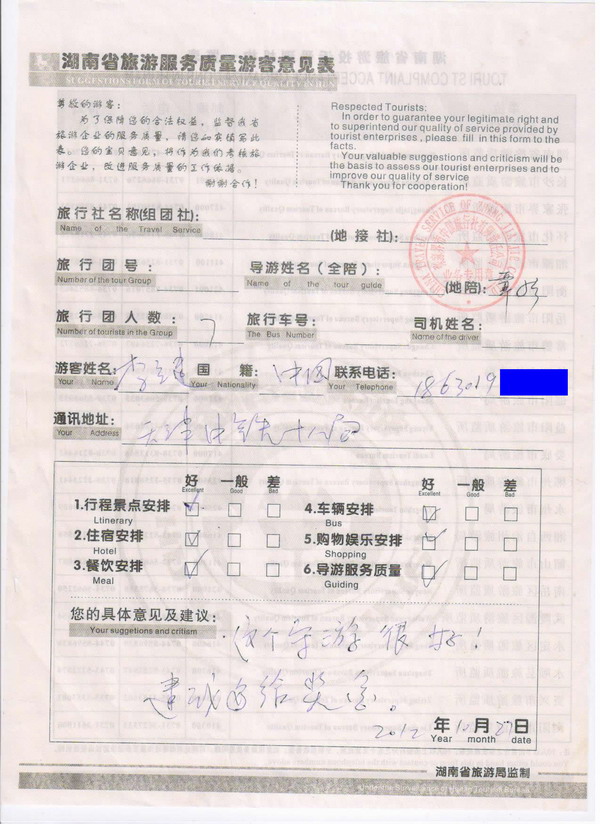 湖南省旅游服务质量游客意见表
尊敬的游客:
为了保障您的合法权益,监督我省
旅游企业的服务质量,请您如实填写此
表。您的宝贵意见,将作为我们考核旅
游企业,改进服务质量的工作依据。
谢谢合作!
Respected Tourists:
In order to guarantee your legitimate right and
to superintend our quality of service provided by
tourist enterprises , please fill in this form to the
facts.
Your valuable suggestions and criticism will be
the basis to assess our tourist enterprises and to
improve our quality of service
Thank you for cooperation!
旅行社名称(组团社): (地接社):
Name of the Travel Service
旅行团号: 导游姓名(全陪): (地陪):
Number of the tour Group Name of the tour guide
旅行团人数: 7 旅行车号: 司机姓名:
Number of tourists in the Group The Bus Number Name of the driver
游客姓名: 国籍: 中国 联系电话: 1863019
Your Name Your Nationality Your Telephone
通讯地址: 天津中铁十八局
Your Address
好 一般 差 好 一般 差
Excellent Good Bad Excellent Good Bad
1.行程景点安排 4.车辆安排
Ltinerary Bus
2.住宿安排 5.购物娱乐安排
Hotel Shopping
3.餐饮安排 6.导游服务质量
Meal Guiding
您的具体意见及建议: 这个导游很好!
Your suggetions and critism
建议多给奖金。
2012 年 10 月 27 日
Year month date
湖南省旅游局监制